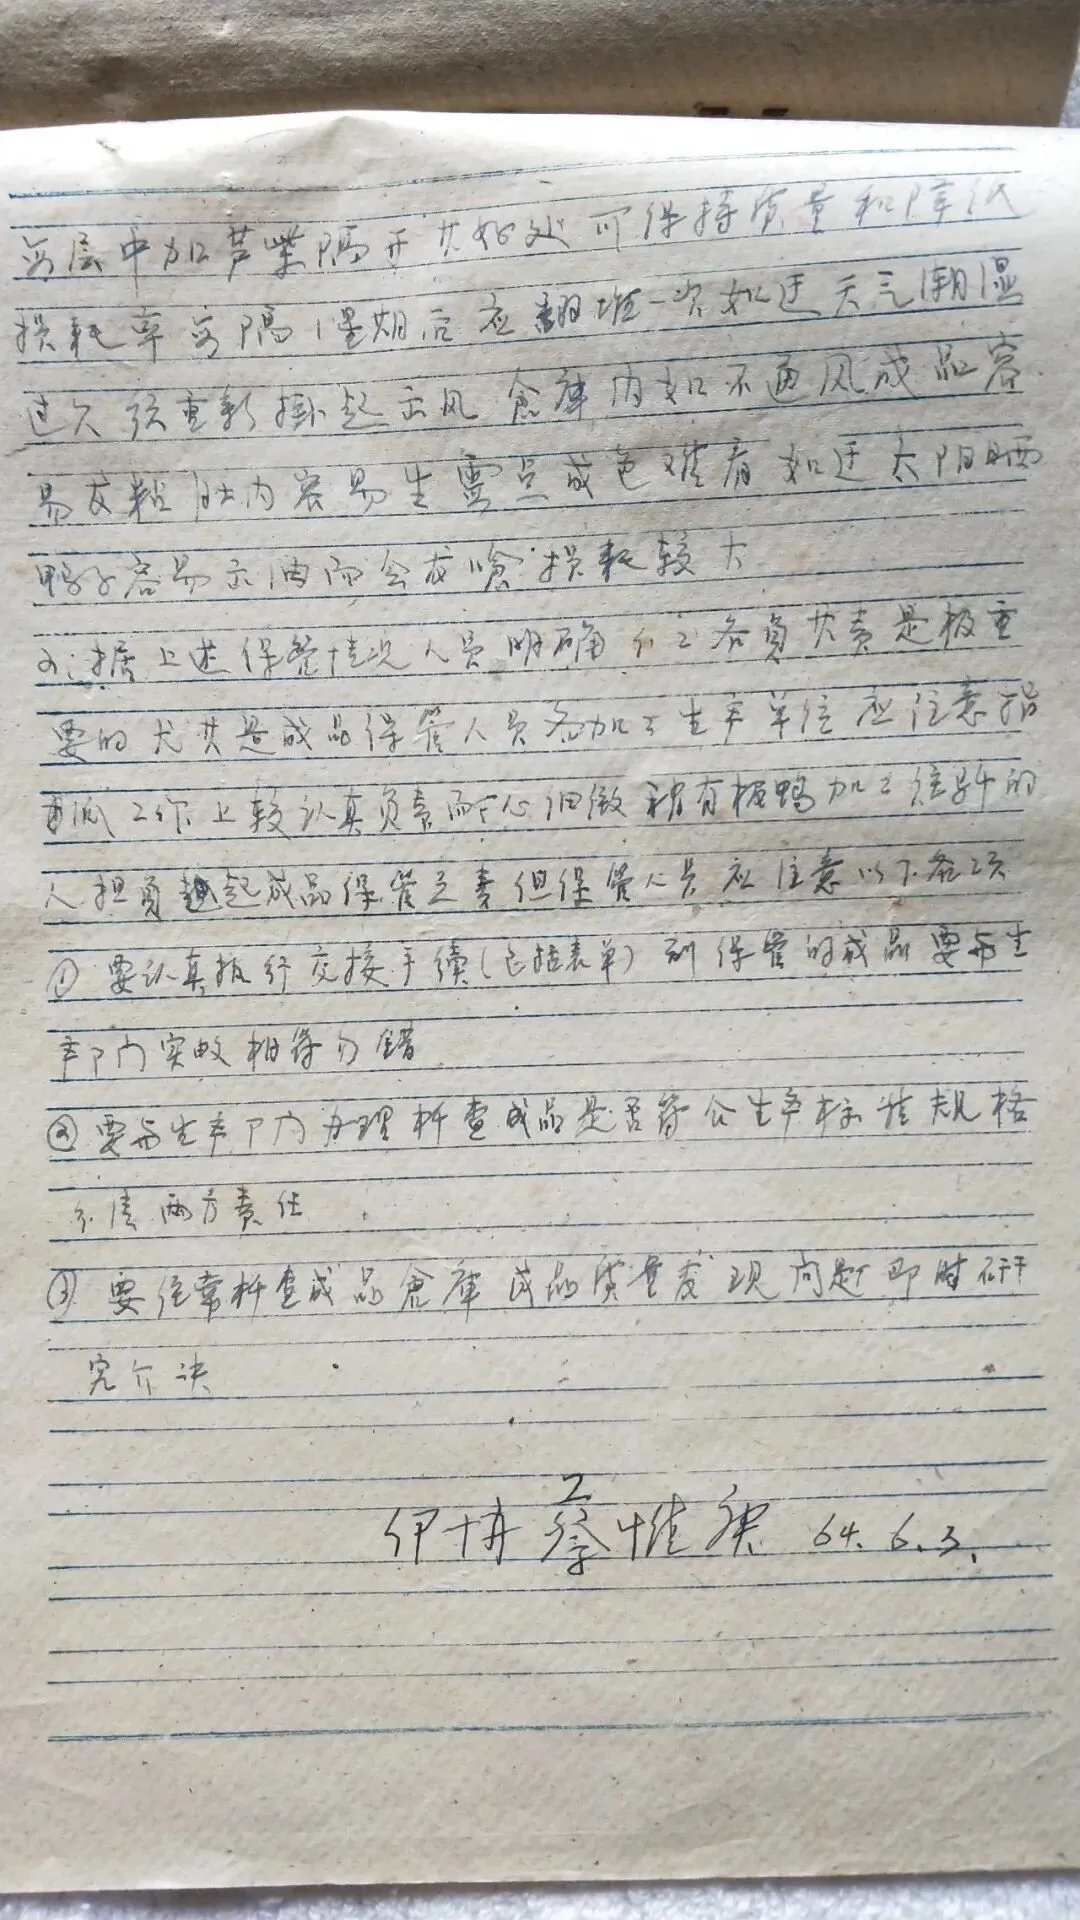 每层中加芦柴隔开其好处可保持质量和降低
损耗率每隔1星期后应翻堆一次如迂天气潮湿
过久须重新掛起云风倉庫内如不通风成品容
易发粘肚内容易生霉点成色难看如迂太阳晒
鸭子容易云油而会发哈损耗较大
2.据上述保管情况人员明确分工各负其责是极重
要的尤其是成品保管人员各加工生产单位应注意指
派工作上较认真负责耐心细微稍有板鸭加工经验的
人担负起成品保管之责但保管人员应注意以下各项
① 要认真执行交接手续(包括表单)对保管的成品要与生
产部门实收相符勿错
② 要与生产部门办理检查成品是否符合生产标准规格
分清两方责任
③ 要经常检查成品倉庫成品质量发现问题即时研
究介决
蔡惟 64.6.3.